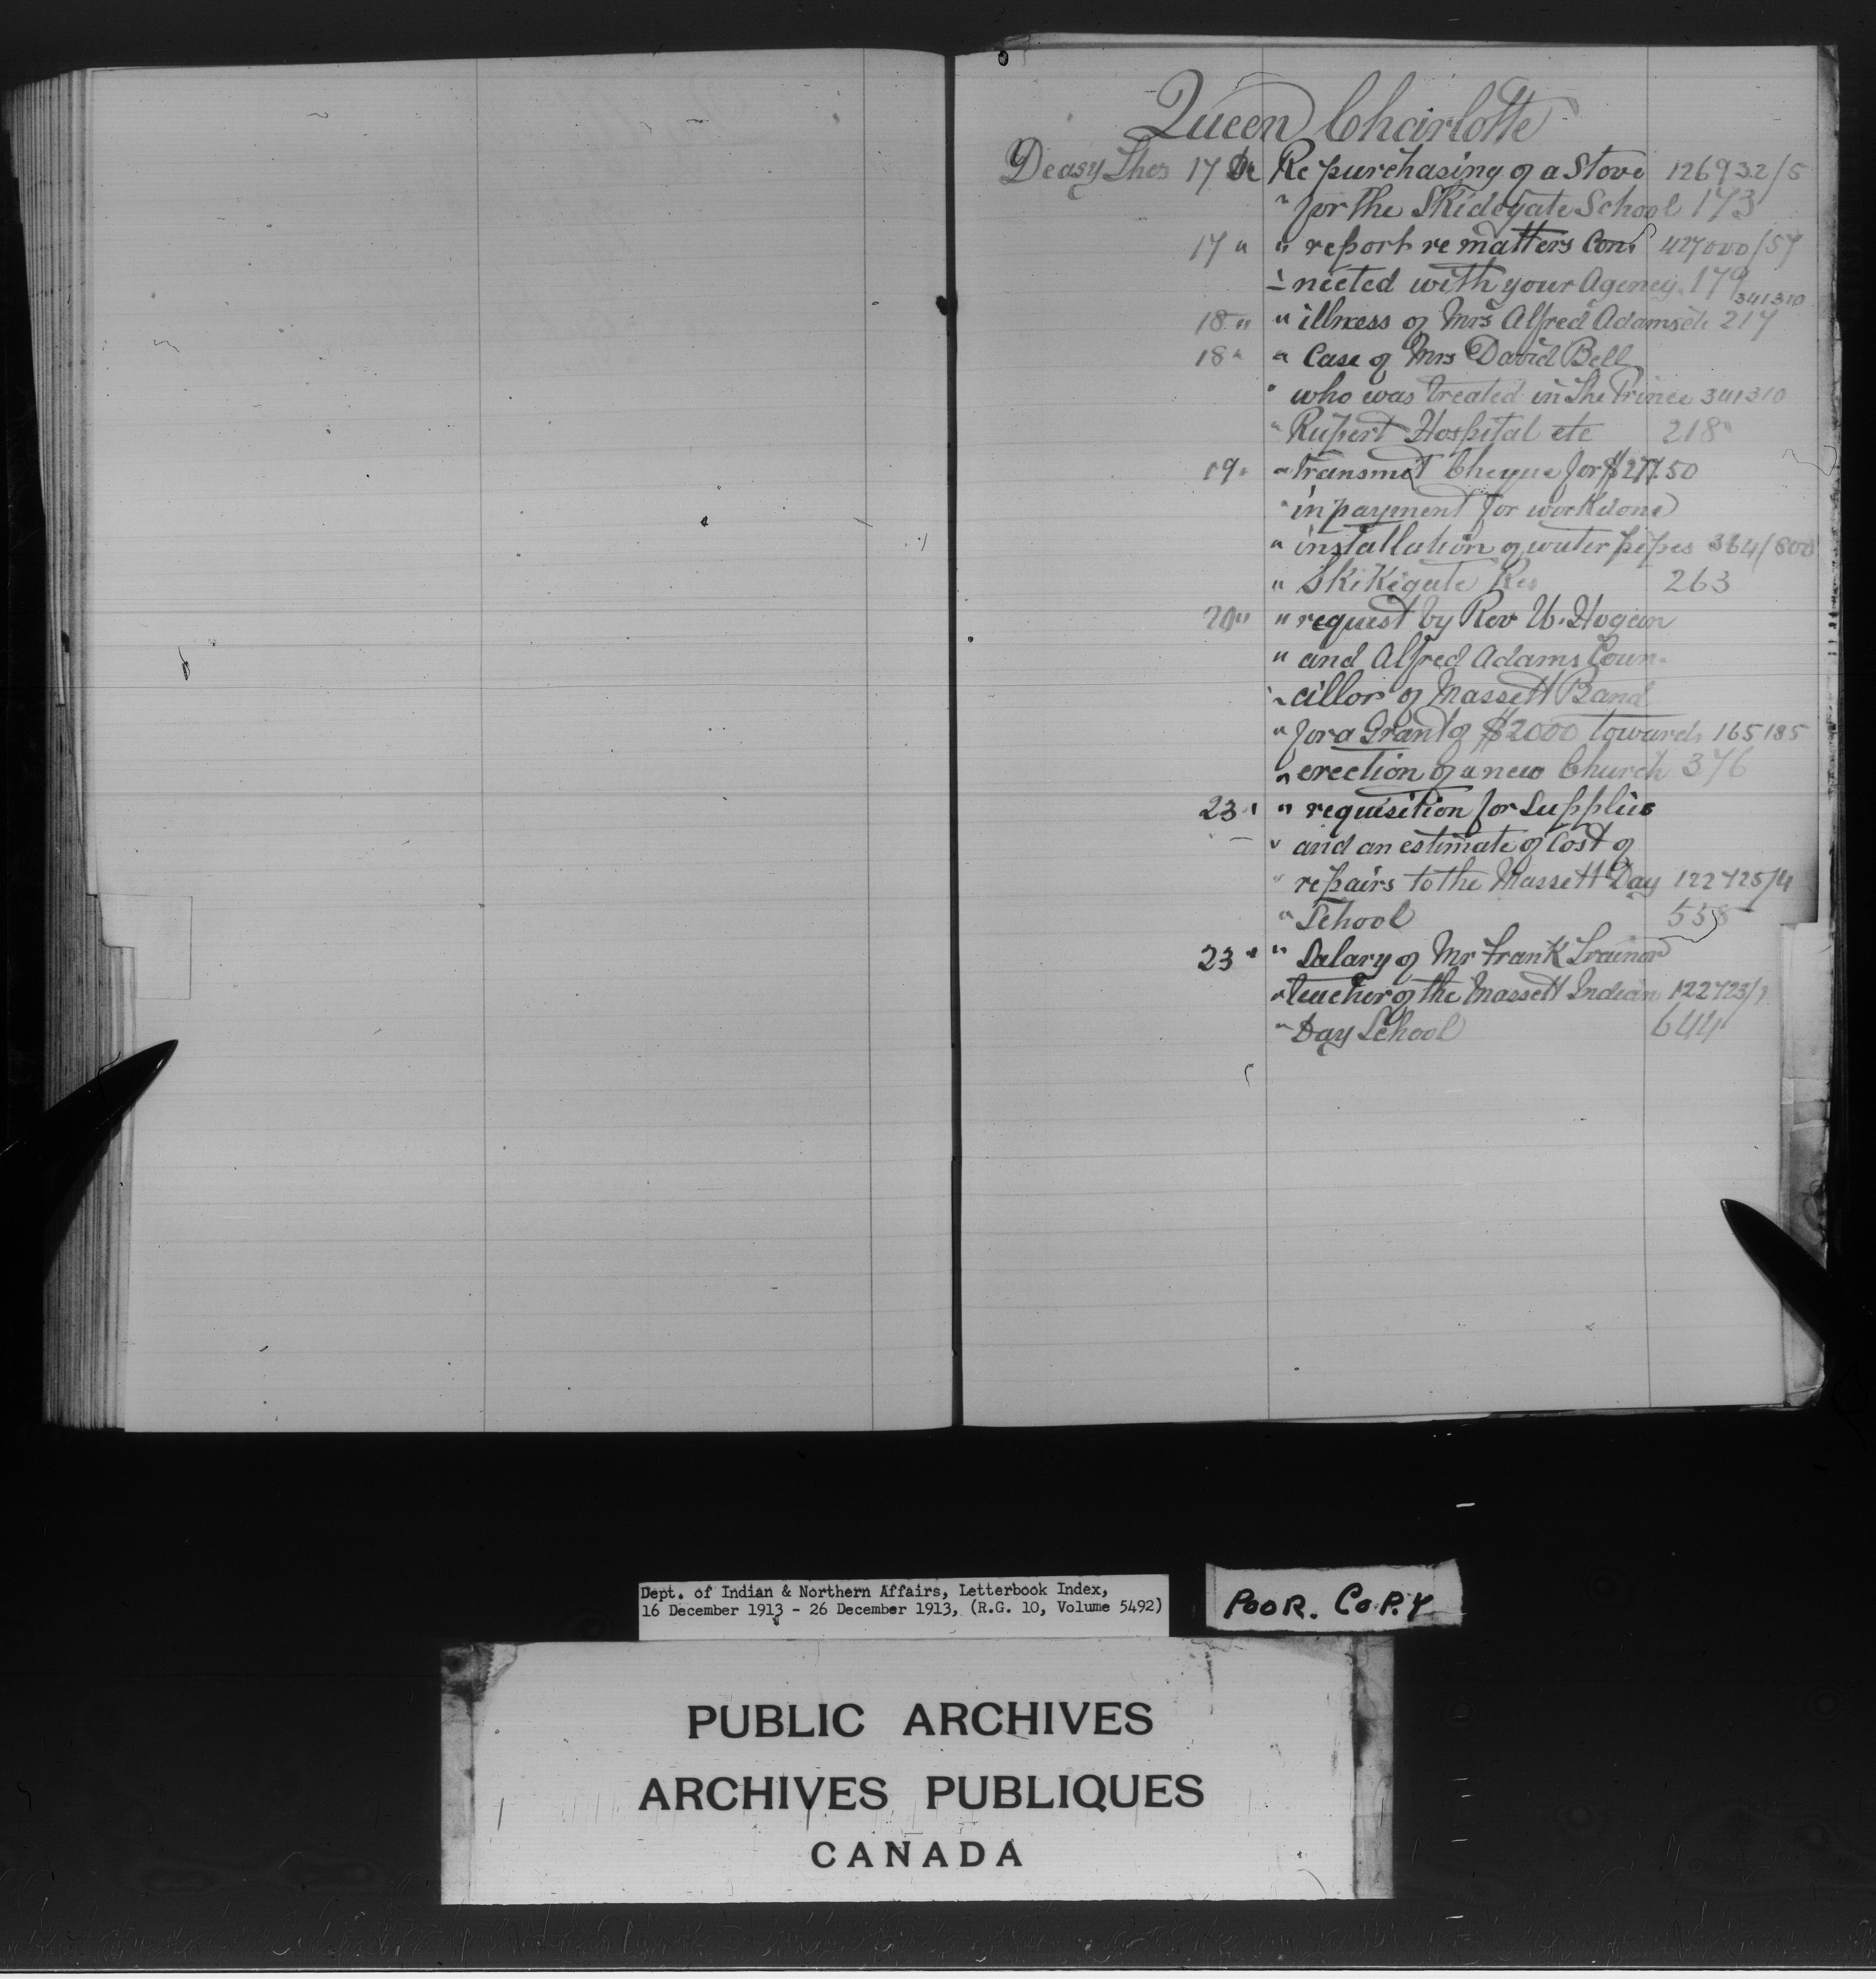 Queen Charlotte
Deasy Thos 17 De Re purchasing of a Stove 126932/5
" for the Skidegate School 173
17 " " report re matters Con- 427000/57
- nected with your Agency 179
341310
18 " " illness of Mrs Alfred Adams etc 217
18 " " Case of Mrs David Bell
" who was treated in the Prince 341310
" Rupert Hospital etc 218
19 " " transmit Cheque for $277.50
" in payment for work done
" installation of water pipes 364/800
" Skikegate Res 263
20 " " request by Rev W. Hogan
" and Alfred Adams Coun-
" cillor of Massett Band
" for a Grant of $2000 towards 165185
" erection of a new Church 376
23 " " requisition for Supplies
" and an estimate of Cost of
" repairs to the Massett Day 122725/4
" School 558
23 " " Salary of Mr Frank Trainor
" teacher of the Massett Indian 122723/1
" Day School 644
Dept. of Indian & Northern Affairs, Letterbook Index,
16 December 1913 - 26 December 1913, (R.G. 10, Volume 5492)
POOR. COPY
PUBLIC ARCHIVES
ARCHIVES PUBLIQUES
CANADA